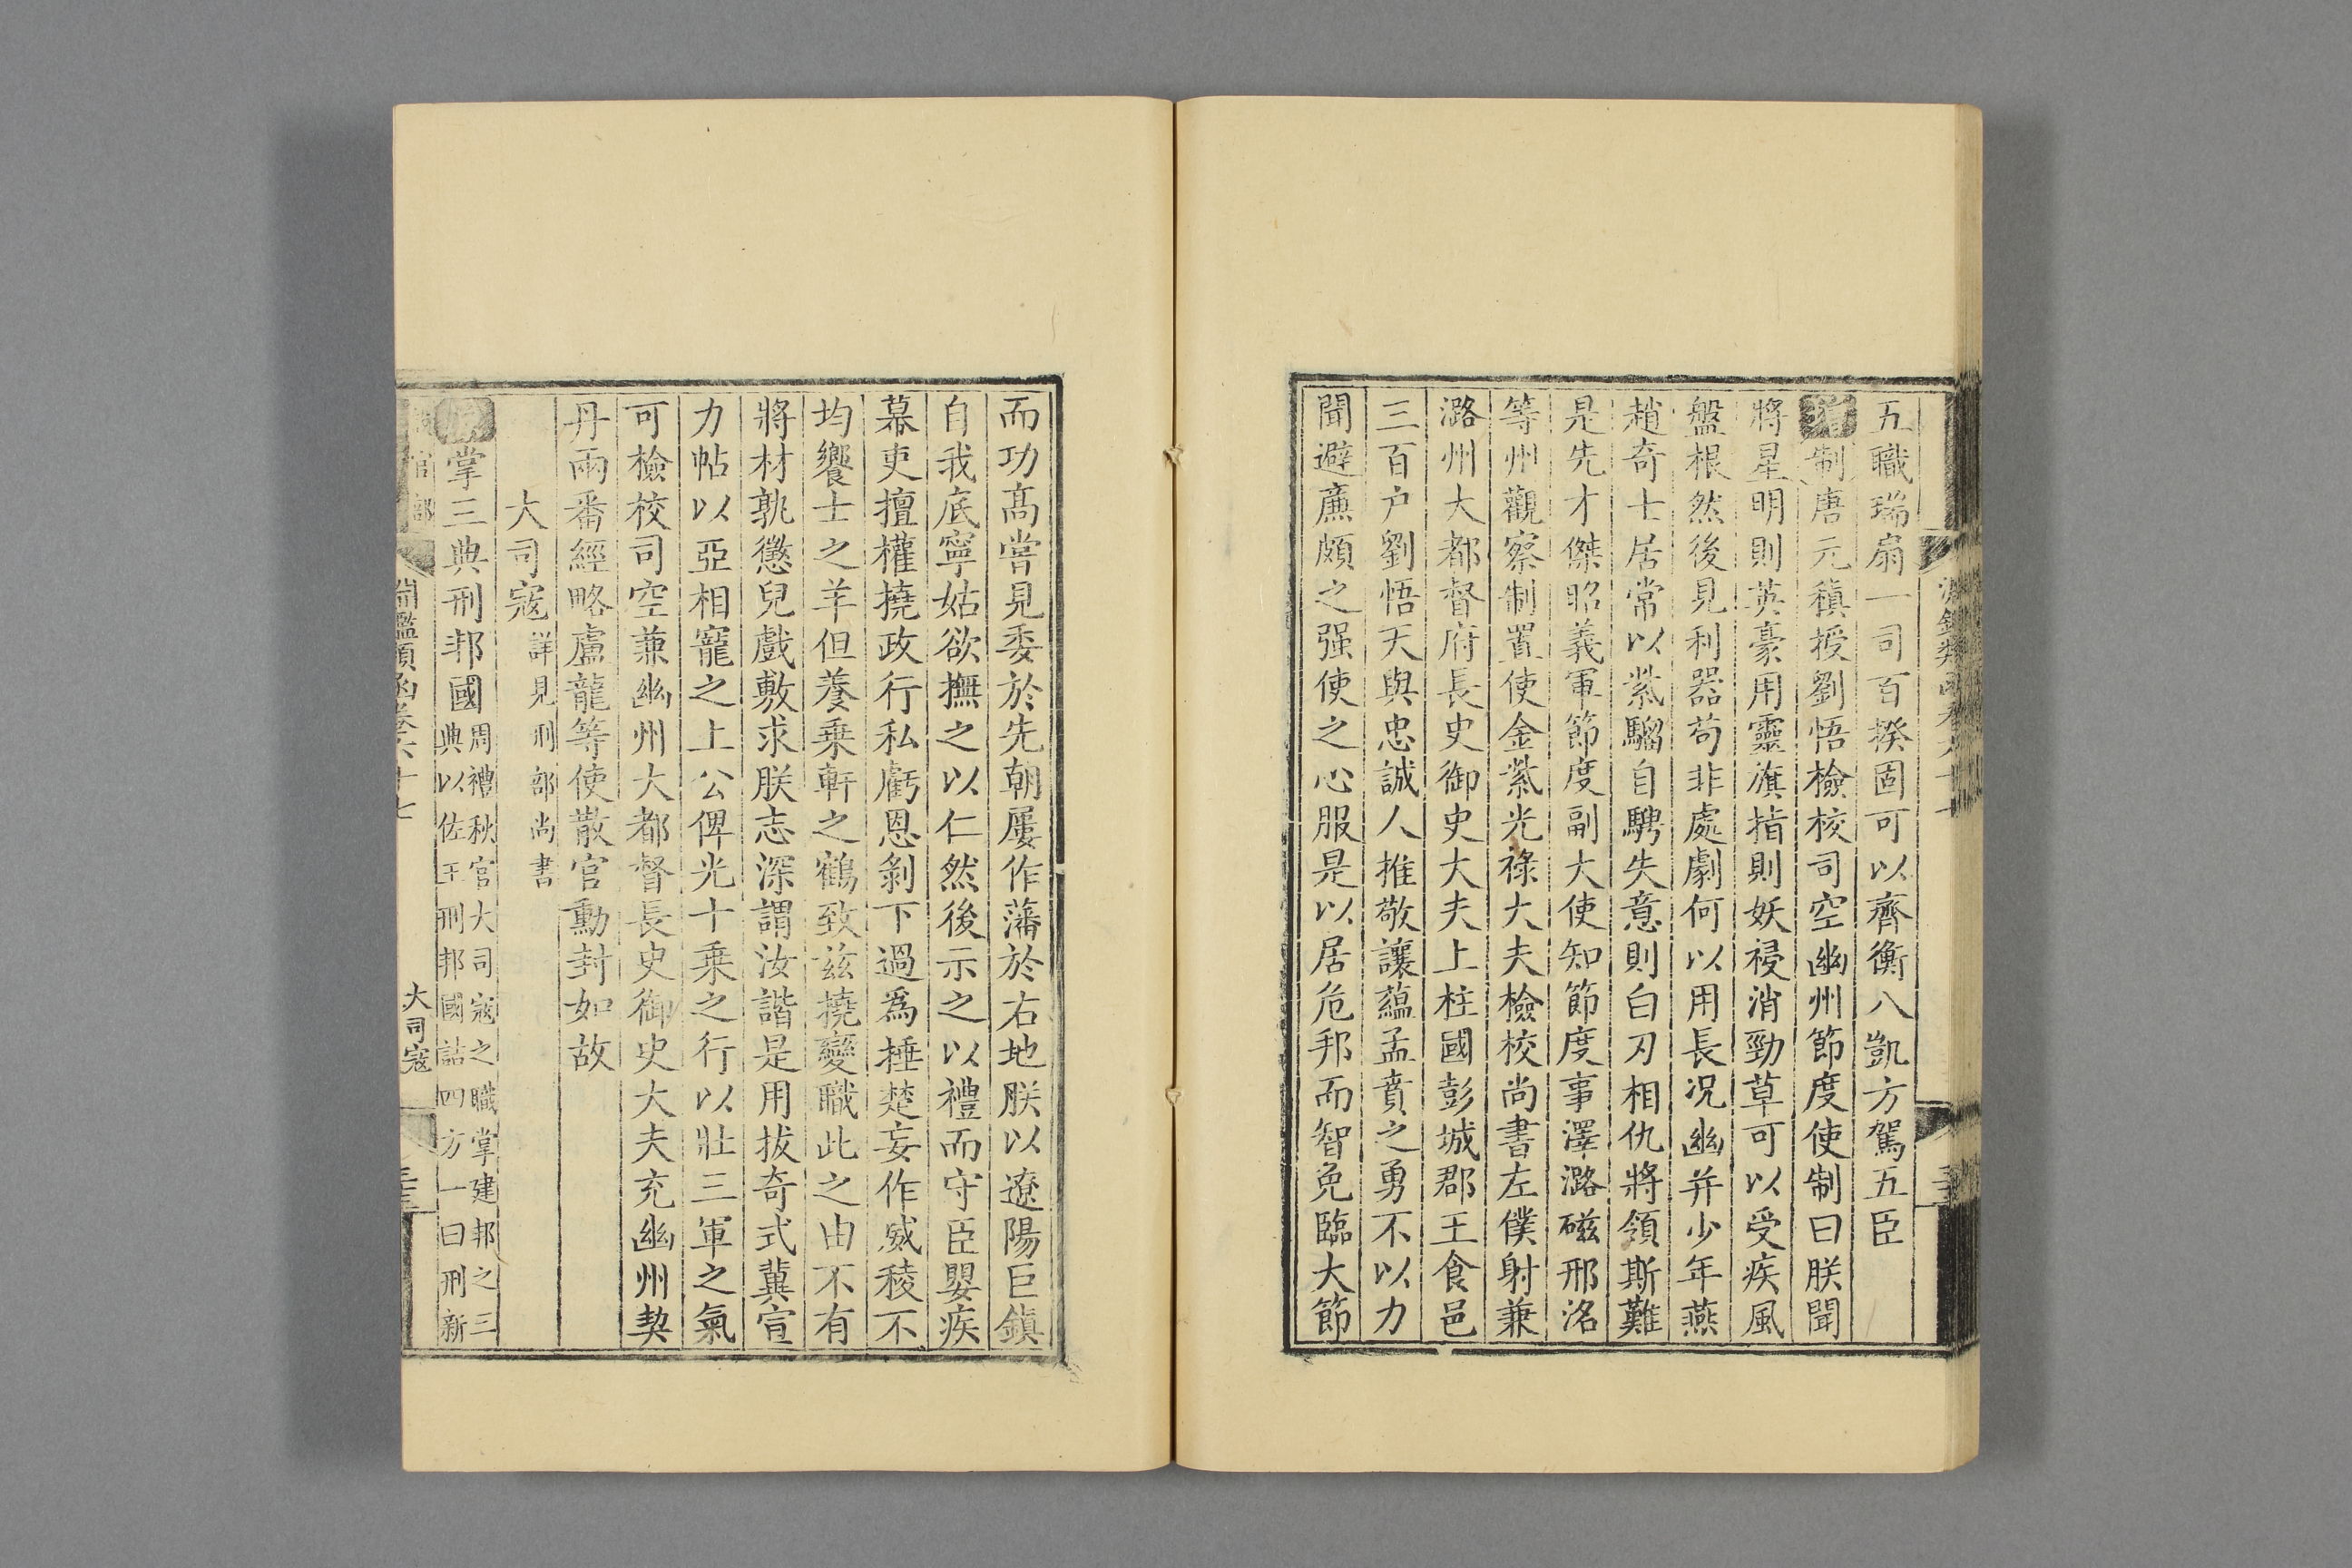 五職瑞扇一司百揆固可以齊衡八凱方駕五臣
制唐元稹授劉悟檢校司空幽州節度使制曰朕聞
將星明則英豪用靈旗指則妖祲消勁草可以受疾風
盤根然後見利器苟非處劇何以用長况幽并少年燕
趙奇士居常以紫騮自騁失意則白刃相仇將領斯難
是先才傑昭義軍節度副大使知節度事澤潞磁邢洺
等州觀察制置使金紫光祿大夫檢校尚書左僕射兼
潞州大都督府長史御史大夫上柱國彭城郡王食邑
三百户劉悟天與忠誠人推敬讓蘊孟賁之勇不以力
聞避亷頗之强使之心服是以居危邦而智免臨大節
而功髙嘗見委於先朝屢作藩於右地朕以遼陽巨鎮
自我底寧姑欲撫之以仁然後示之以禮而守臣嬰疾
幕吏擅權撓政行私虧恩剝下過爲捶楚妄作威稜不
均饗士之羊但養乗軒之鶴致兹撓變職此之由不有
將材孰懲兒戲敷求朕志深謂汝諧是用拔奇式冀宣
力帖以亞相寵之上公俾光十乗之行以壯三軍之氣
可檢校司空兼幽州大都督長史御史大夫充幽州契
丹兩番經略盧龍等使散官勳封如故
大司寇詳見刑部尚書
掌三典刑邦國周禮秋官大司寇之職掌建邦之三
典以佐王刑邦國詰四方一曰刑新
鑑類函卷六十七
大司寇